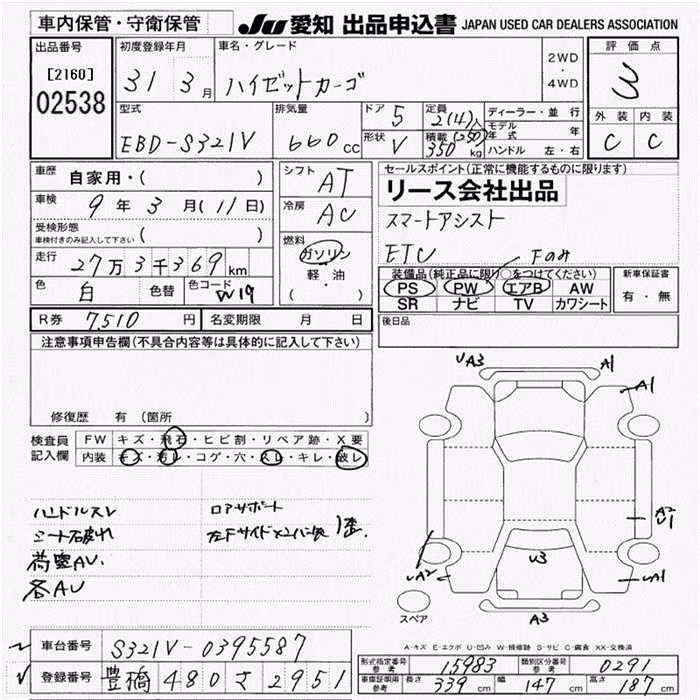 車内保管・守衛保管
JU 愛知 出品申込書 JAPAN USED CAR DEALERS ASSOCIATION
出品番号 [2160] 02538
初度登録年月 31 3月
車名・グレード ハイゼットカーゴ
2WD・4WD
評価点 3
外装 C 内装 C
型式 EBD-S321V
排気量 660cc
ドア 5
形状 V
定員 2(4)人
積載 (250) 350kg
ディーラー・並行
モデル年式 年
ハンドル 左・右
車歴 自家用・( )
車検 9年3月(11日)
受検形態 車検付きのみ記入して下さい ( )
走行 27万3千369km
色 白 色替 色コード W19
シフト AT
冷房 AC
燃料 ガソリン 軽油 ( ・ )
セールスポイント(正常に機能するものに限ります)
リース会社出品
スマートアシスト
ETC Fのみ
装備品(純正品に限り○をつけてください)
PS PW エアB AW
SR ナビ TV カワシート
新車保証書 有・無
R券 7,510円 名変期限 月 日
後日品
注意事項申告欄(不具合内容等は具体的に記入して下さい)
修復歴 有(箇所 )
検査員記入欄
FW キズ・飛石・ヒビ割・リペア跡・X要
内装 キズ・汚レ・コゲ・穴・スレ・キレ・破レ
ハンドルスレ ロアサポート
シート破れ
荷室AU.
各AU
UA3 A1
A1
A2
U1
U3
UA2 UA1
A3
スペア
A-キズ E-エクボ U-凹み W-補修跡 S-サビ C-腐食 XX-交換済
車台番号 S321V-0395587
登録番号 豊橋 480 さ 2951
形式指定番号 参考 15983 類別区分番号 参考 0291
車庫証明用 参考 長さ 339cm 幅 147cm 高さ 187cm